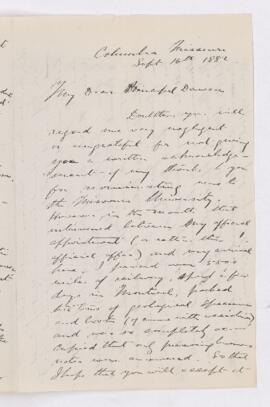 Columbia Missouri
Sept 16th 1882
My Dear Principal Dawson
Doubtless you will
regard me very negligent
or ungrateful for not giving
you a written acknowledge-
ment of my thanks to you
for recommending me to
the Missouri University.
However in the month that
intervened between my official
appointment (or rather the
official offer) and my arrival
here. I passed over 3500
miles of railway, spent a few
days in Montreal, packed
tons of geological specimens
and books
and was so completely oc-
cupied that only pressing business
notes were answered. So that
I hope that you will accept it